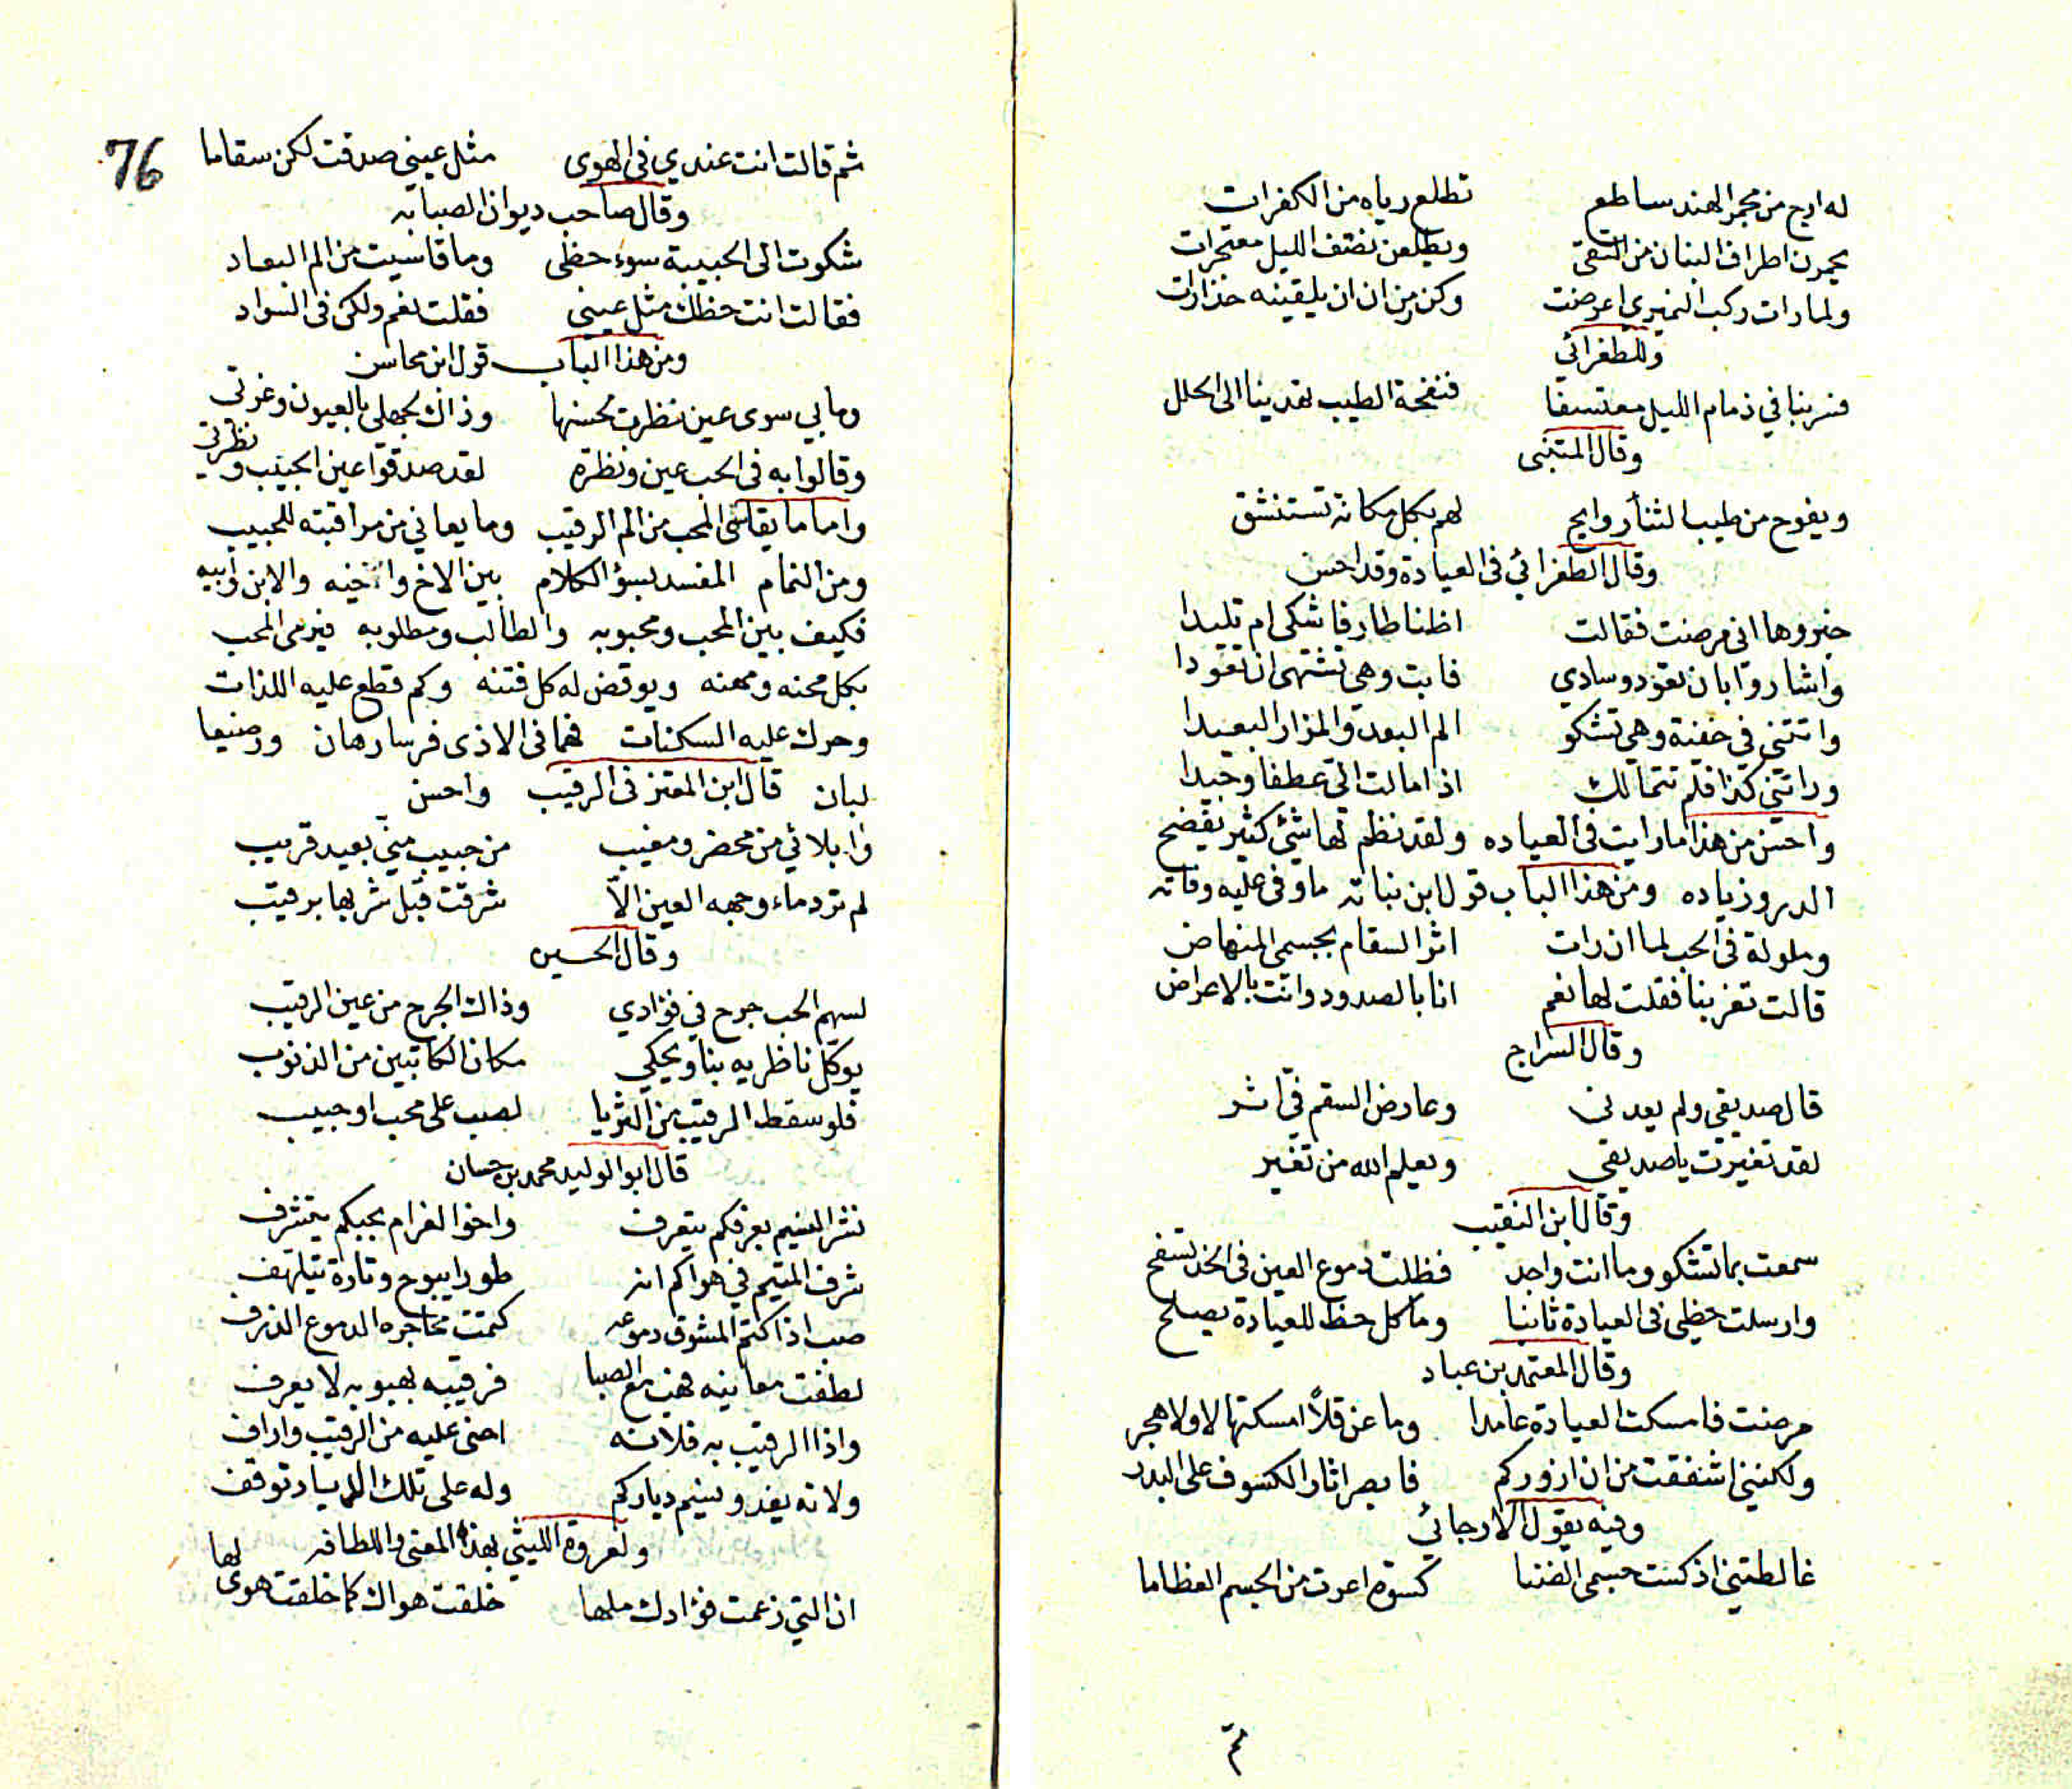 له ارج من مجمر الهند ساطع تطلع رياه من الكفرات
يخمرن اطراف البنان من التقى ويطلعن نصف الليل معتجرات
ولما رات ركب النميري اعرضت وكن من ان يلقينه حذرات
وللطغرائي
فسر بنا في ذمام الليل معتسفا فنفحة الطيب تهدينا الى الحلل
وقال المتنبى
ويفوح من طيب الثنأ روايح لهم بكل مكانة تستنشق
وقال الطغرائي فى العيادة وقد احسن
خبروها انى مرضت فقالت اظنا طارفا شكى ام تليدا
واشاروا بان تعود وسادي فابت وهى تشتهى ان تعودا
واتتني في خفية وهي تشكو الم البعد والمزار البعيدا
وراتني كذا فلم تتمالك اذ امالت الي عطفا وجيدا
واحسن من هذا ما رايت فى العياده ولقد نظم لها شئ كثير يفضح
الدر وزياده ومن هذا الباب قول ابن نباته ما وفى عليه وفاته
وملولة فى الحب لما ان رات اثر السقام بجسمى المنهاض
قالت تغربنا فقلت لها نعم انا بالصدود وانت بالاعراض
وقال السراج
قال صديقى ولم يعدنى وعارض السقم فى اثر
لقد تغيرت يا صديقى ويعلم الله من تغير
وقال ابن النقيب
سمعت بما تشكو وما انت واجد فظلت دموع العين فى الخد تسفح
وارسلت حظى فى العيادة ثانيا وما كل حظ للعيادة يصلح
وقال المعتمد بن عباد
مرضت فامسكت العيادة عامدا وما عن قلاً امسكتها لا ولا هجر
ولكنني اشفقت من ان ازوركم فابصر اثار الكسوف على البدر
وفيه يقول الارجاني
غالطتني اذ كست جسمى الضنا كسوة اعرت من الجسم العظاما
76
ثم قالت انت عندي فى الهوى مثل عيني صدقت لكن سقاما
وقال صاحب ديوان الصبابه
شكوت الى الحبيبة سوء حظى وما قاسيت من الم البعاد
فقالت انت حظك مثل عيني فقلت نعم ولكن فى السواد
ومن هذا الباب قول ابن محاسن
وما بي سوى عين نظرت لحسنها وذاك لجهلي بالعيون وغرتى
وقالوا به فى الحب عين ونظرة لقد صدقوا عين الحبيب ونظرتى
واما ما يقاسى المحب من الم الرقيب وما يعاني من مراقبته للحبيب
ومن النمام المفسد بسؤ الكلام بين الاخ واخيه والابن وابيه
فكيف بين المحب ومحبوبه والطالب ومطلوبه فيرمى المحب
بكل محنه ومهنه ويوقض له كل فتنه وكم قطع عليه اللذات
وحرك عليه السكنات فهما فى الاذى فرسا رهان ورضيعا
لبان قال ابن المعتز فى الرقيب واحسن
وابلائي من محضر ومغيب من حبيب مني بعيد قريب
لم ترد ماء وجهه العين الاّ شرقت قبل شربها برقيب
وقال الحسين
لسهم الحب جرح في فؤادي وذاك الجرح من عين الرقيب
يوكل ناظريه بنا ويحكي مكان الكاتبين من الذنوب
فلو سقط الرقيب من الثريا لصب على محب او حبيب
قال ابو الوليد محمد بن حسان
نشر النسيم بعرفكم يتعرف واخو الغرام بحبكم يتشرف
شرف المتيم في هواكم انه طورا يبوح وتارة يتلهف
صب اذا كتم المشوق دموعه كتمت محاجره الدموع الذرف
لطفت معانيه فهب مع الصبا فرقيبه بهبوبه لا يعرف
واذا الرقيب به فلانه احنى عليه من الرقيب واراف
ولانه يغدو بسنيم دياركم وله على تلك الديار توقف
ولعروة الليثي بهذا المعنى واللطافه
ان التي زعمت فؤادك ملها خلقت هواك كما خلقت هوى لها